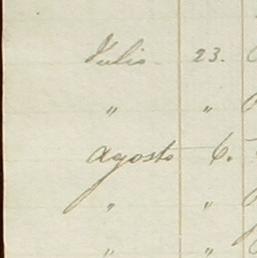 Julio 23.
" "
Agosto 6.
" "
" "